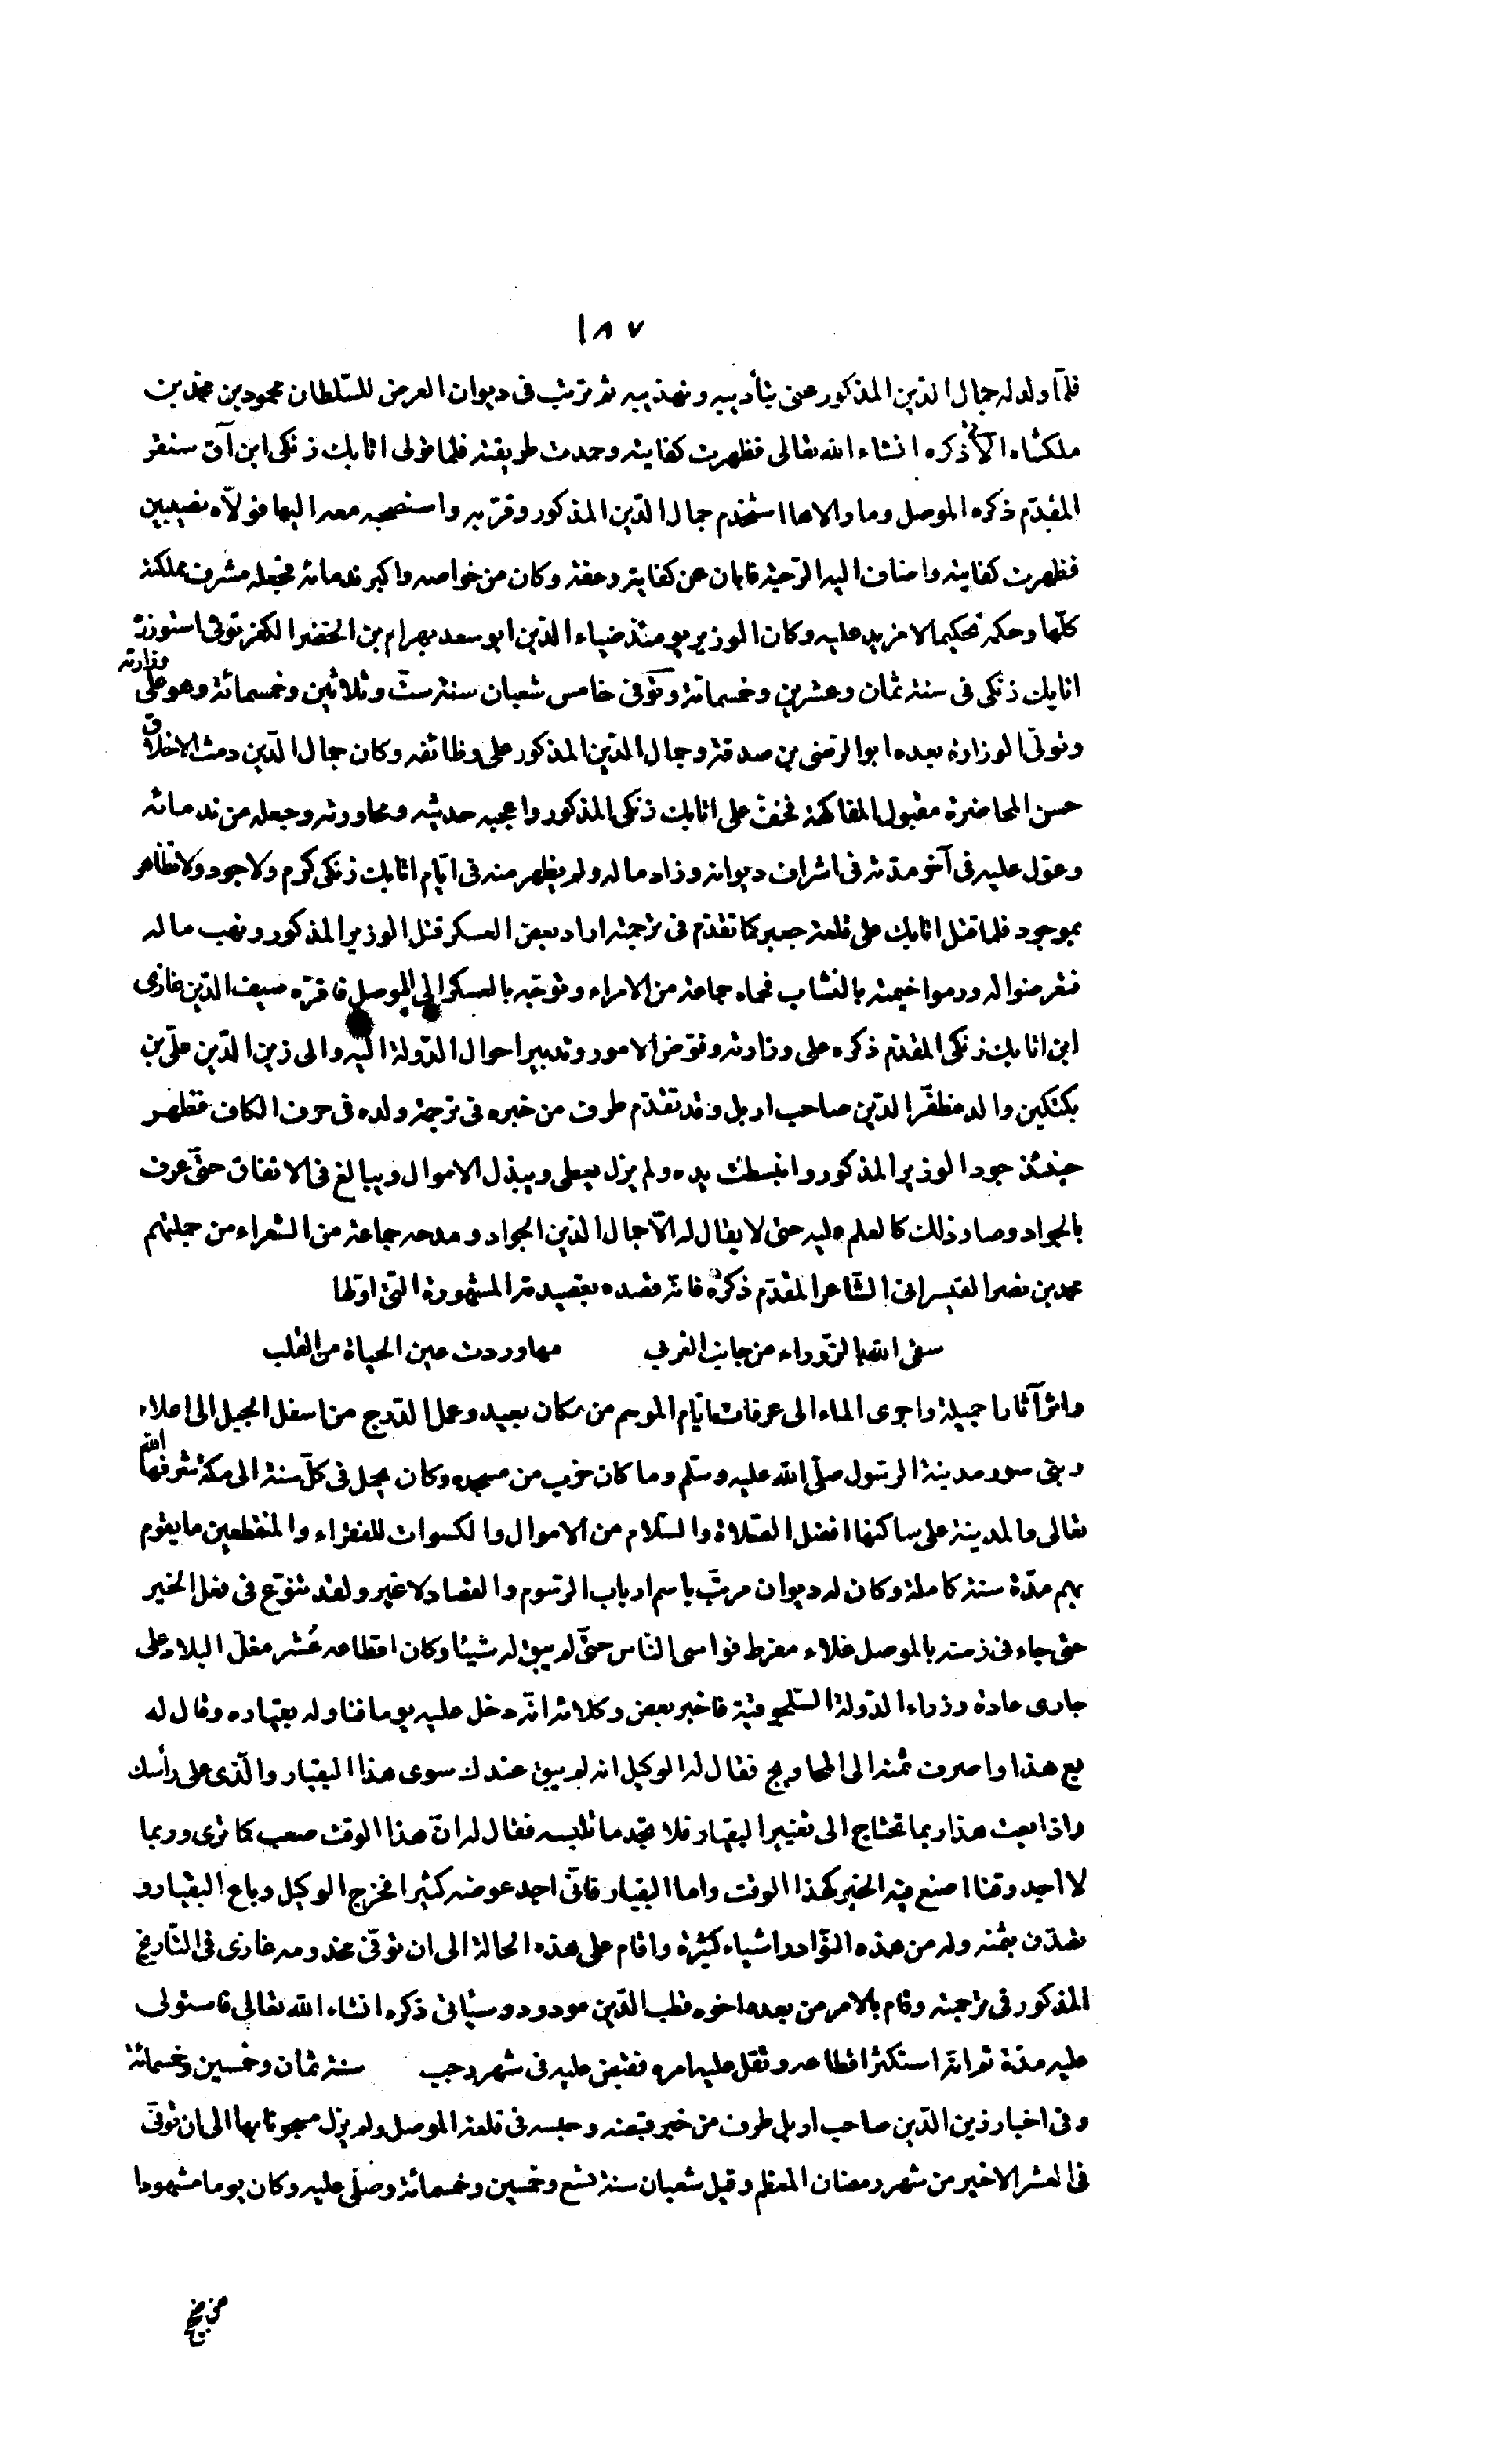 ١٨٧
فلمّا ولد له جمال الدّين المذكور عنى بتأديبه وتهذيبه ثم ترتب فى ديوان العرض للسّلطان محمود بن محمّد بن
ملكشاه الآتى ذكره انشاء الله تعالى فظهرت كفايته وحمدت طريقته فلما تولى اتابك زنكى ابن آق سنقر
المقدّم ذكره الموصل وما والاها استخدم جمال الدّين المذكور وقرّبه واستصحبه معه اليها فولّاه نصيبين
فظهرت كفايته واضاف اليه الرّحبة فابان عن كفاية وعفة وكان من خواصه واكبر ندمائه فجعله مشرف مملكته
كلّها وحكمه تحكيما لا مزيد عليه وكان الوزير يومئذ ضياء الدّين ابو سعد بهرام بن الخضر الكفرتوثى استوزره
اتابك زنكى فى سنة ثمان وعشرين وخمسمائة وتوفى خامس شعبان سنة ستّ وثلاثين وخمسمائة وهو على وزارته
وتولّى الوزارة بعده ابو الرضى بن صدقة وجمال الدّين المذكور على وظائفه وكان جمال الدّين دمث الاخلاق
حسن المحاضرة مقبول المفاكهة فخفّ على اتابك زنكى المذكور واعجبه حديثه ومحاورته وجعله من ندمائه
وعوّل عليه فى آخر مدّته فى اشراف ديوانه وزاد ماله ولم يظهر منه فى ايّام اتابك زنكى كرم ولا جود ولا تظاهر
بموجود فلما قتل اتابك على قلعة جعبر كما تقدّم فى ترجمته اراد بعض العسكر قتل الوزير المذكور ونهب ماله
فتعرضوا له ورموا خيمته بالنشاب فحماه جماعة من الامراء وتوجّه بالعسكر الى الموصل فاقرّه سيف الدّين غازى
ابن اتابك زنكى المقدّم ذكره على وزارته وفوّض الامور وتدبير احوال الدّولة اليه والى زين الدّين علىّ بن
بكتكين والد مظفّر الدّين صاحب اربل وقد تقدّم طرف من خبره فى ترجمة ولده فى حرف الكاف فظهر
حينئذ جود الوزير المذكور وانبسطت يده ولم يزل يعطى ويبذل الاموال ويبالغ فى الانفاق حتّى عرف
بالجواد وصار ذلك كالعلم عليه حتى لا يقال له الّا جمال الدّين الجواد ومدحه جماعة من الشعراء من جملتهم
محمد بن نصر القيسرانى الشّاعر المقدّم ذكره فانّه قصده بقصيدته المشهورة الّتى اوّلها
سقى الله بالزّوراء من جانب الغربى مها وردت عين الحياة من القلب
واثر آثارا جميلة واجرى الماء الى عرفات ايّام الموسم من مكان بعيد وعمل الدّرج من اسفل الجبل الى اعلاه
وبنى سور مدينة الرسول صلّى الله عليه وسلّم وما كان خرب من مسجده وكان يحمل فى كلّ سنة الى مكة شرفها الله
تعالى والمدينة على ساكنها افضل الصّلاة والسّلام من الاموال والكسوات للفقراء والمنقطعين ما يقوم
بهم مدّة سنة كاملة وكان له ديوان مرتبّ باسم ارباب الرّسوم والقصاد لا غير ولقد تنوّع فى فعل الخير
حتى جاء فى زمنه بالموصل غلاء مفرط فواسى النّاس حتّى لم يبق له شيئا وكان اقطاعه عُشر مغلّ البلاد على
جارى عادة وزراء الدّولة السّلجوقيّة فاخبر بعض وكلائه انّه دخل عليه يوما فناوله بقياره وقال له
بع هذا واصرف ثمنه الى المحاويج فقال له الوكيل انه لم يبق عندك سوى هذا البقيار والّذى على رأسك
واذا بعت هذا ربما تحتاج الى تغيير البقيار فلا تجد ما تلبسه فقال له انّ هذا الوقت صعب كما ترى وربما
لا اجد وقتا اصنع فيه الخير كهذا الوقت واما البقيار فانّى اجد عوضه كثيرا فخرج الوكيل وباع البقيار و
تصدّق بثمنه وله من هذه النّوادر اشياء كثيرة واقام على هذه الحالة الى ان توفّى مخدومه غازى فى التّاريخ
المذكور فى ترجمته وقام بالامر من بعده اخوه قطب الدّين مودود وسيأتى ذكره انشاء الله تعالى فاستولى
عليه مدّة ثم انّه استكثر اقطاعه وثقل عليه امره فقبض عليه فى شهر رجب سنة ثمان وخمسين وخمسمائة
وفى اخبار زين الدّين صاحب اربل طرف من خبر قبضه وحبسه فى قلعة الموصل ولم يزل مسجونا بها الى ان توفىّ
فى العشر الاخير من شهر رمضان المعظم وقيل شعبان سنة تسع وخمسين وخمسمائة وصلّى عليه وكان يوما مشهودا